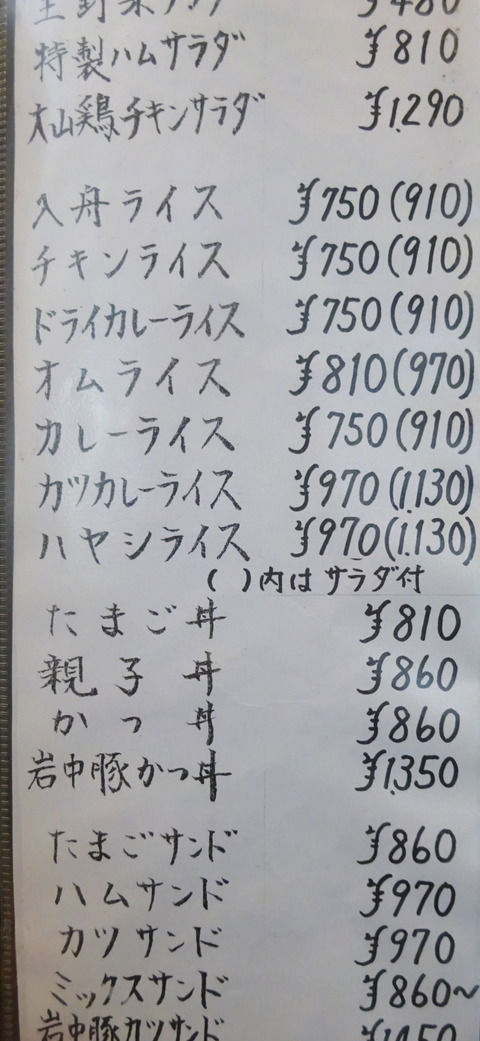 生野菜サラダ ¥480
特製ハムサラダ ¥810
大山鶏チキンサラダ ¥1.290
入舟ライス ¥750(910)
チキンライス ¥750(910)
ドライカレーライス ¥750(910)
オムライス ¥810(970)
カレーライス ¥750(910)
カツカレーライス ¥970(1.130)
ハヤシライス ¥970(1.130)
( )内はサラダ付
たまご丼 ¥810
親子丼 ¥860
かつ丼 ¥860
岩中豚かつ丼 ¥1.350
たまごサンド ¥860
ハムサンド ¥970
カツサンド ¥970
ミックスサンド ¥860~
岩中豚カツサンド ¥1.450